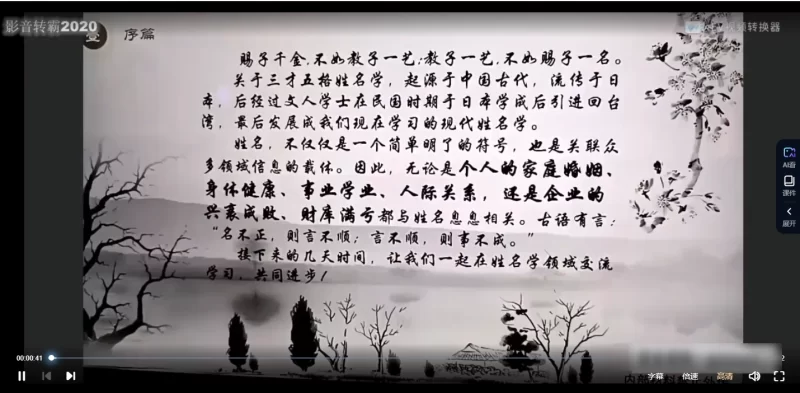 影音转霸2020
壹 序篇
频转换器
赐子千金,不如教子一艺;教子一艺,不如赐子一名。
关于三才五格姓名学,起源于中国古代,流传于日
本,后经过文人学士在民国时期于日本学成后引进回台
湾,最后发展成我们现在学习的现代姓名学。
姓名,不仅仅是一个简单明了的符号,也是关联众
多领域信息的载体。因此,无论是个人的家庭婚姻、
身体健康、事业学业、人际关系,还是企业的
兴衰成败、财库满亏都与姓名息息相关。古语有言:
“名不正,则言不顺;言不顺,则事不成。”
接下来的几天时间,让我们一起在姓名学领域交流
学习,共同进步!
AI音
课件
展开
00:00:41
字幕 倍速 高清